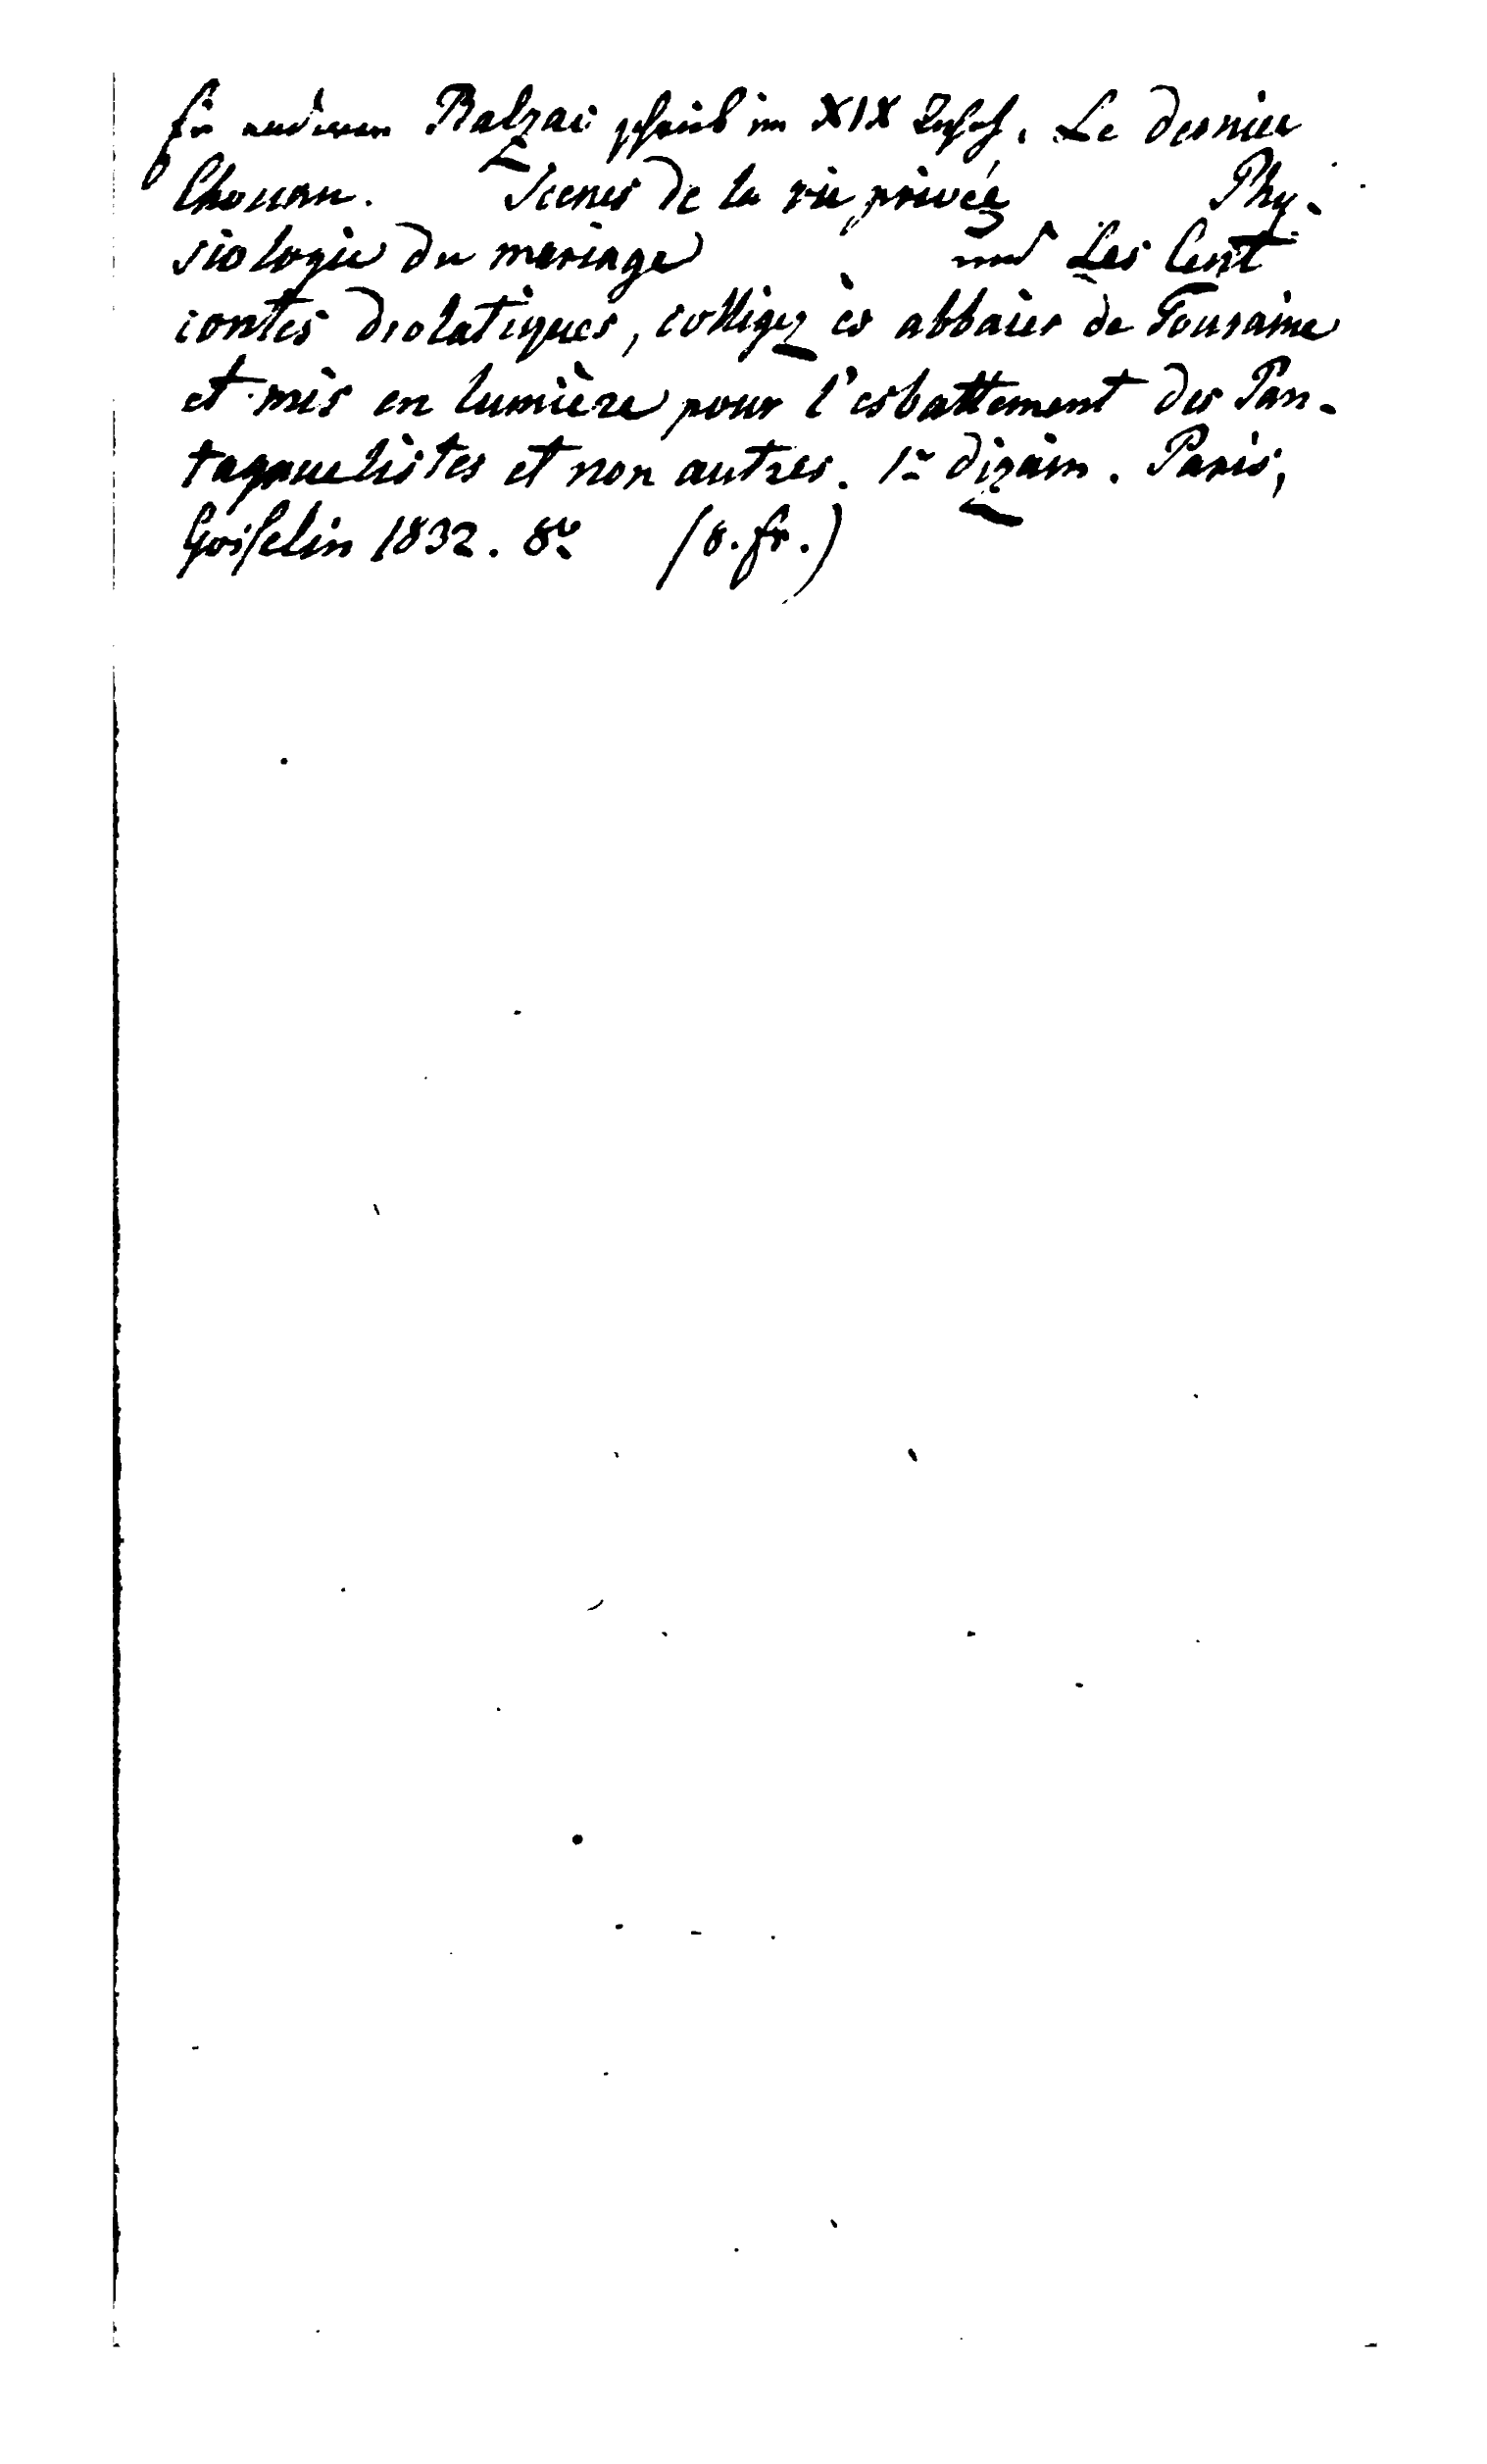 Ein anderer Balzac schrieb im XIX Jahrh. Le dernier
Chouan. Scenes de la vie privée Phy-
siologie du mariage und Les Cent
contes drolatiques, colligez ès abbaies de Touraine
et mis en lumière pour l'esbattement des Pan-
tagruelistes et non autres. 1r dizain. Paris,
Gosselin 1832. 8v. (8. fr.)